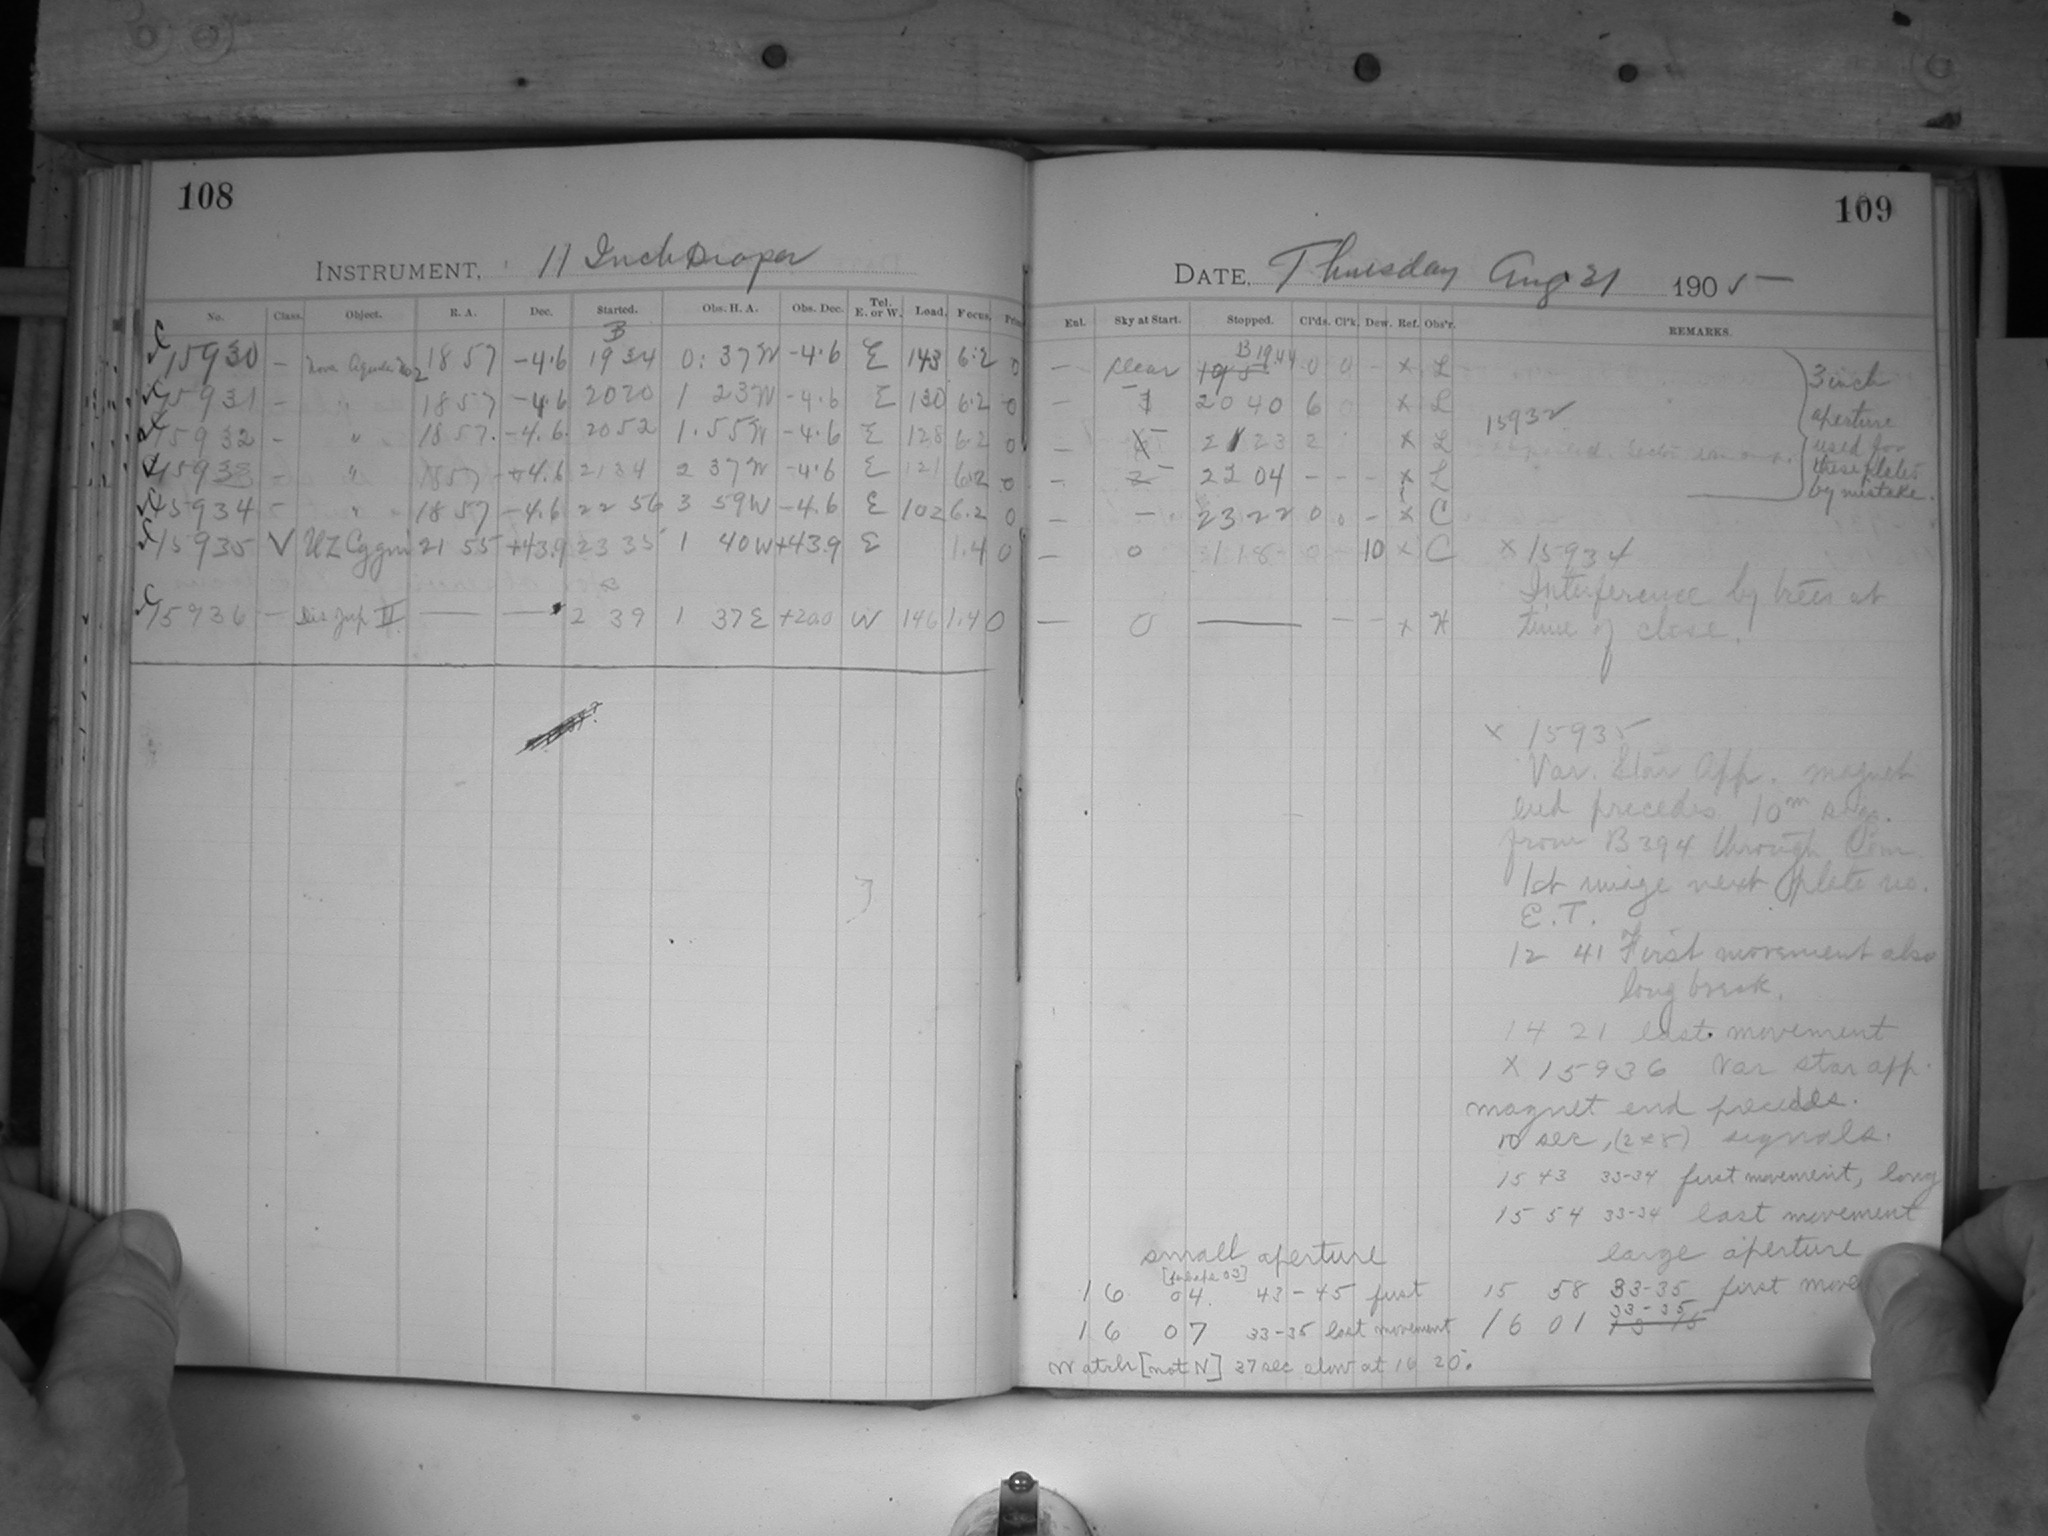 108
INSTRUMENT, 11 Inch Draper
No. Class. Object. R. A. Dec. Started. Obs. H. A. Obs. Dec. Tel. E. or W. Load. Focus.
B
15930 – Nova Aquilae No 2 18 57 -4.6 19 34 0: 37 W -4.6 E 143 6.2 0
15931 – " 18 57 -4.6 2020 1 23 W -4.6 E 130 6.2 0
15932 – " 18 57. -4.6. 2052 1.55 W -4.6 E 128 6.2 0
15933 – " 1857 -4.6 2134 2 37 W -4.6 E 121 6.2 0
15934 – " 1857 -4.6 22 56 3 59 W -4.6 E 102 6.2 0
15935 V UZ Cygni 21 55 +43.9 23 35 1 40 W +43.9 E 1.4 0
15936 – Dis Jup II — — 2 39 1 37 E +20.0 W 146 1.4 0
109
DATE, Thursday Aug 31 1905
Enl. Sky at Start. Stopped. Cl'ds. Cl'k. Dew. Ref. Obs'r. REMARKS.
B 19.44
– clear 0 0 – x L
– 2040 6 0 x L
– 2123 2 x L
– 2204 – – – x L
– – 2322 0 0 – x C
– 0 1 18 0 10 x C
– 0 — – – x H
3 inch
aperture
used for
these plates
by mistake.
15932
x 15934
Interference by trees at
time of close.
x 15935
Var. Star App. magnet
end precedes 10m sigs.
from B394 through Com.
1st image next plate no.
E.T.
12 41 First movement also
long break.
14 21 last movement
x 15936 Var star app.
magnet end precedes.
10 sec, (2x8) signals.
15 43 33-34 first movement, long
15 54 33-34 last movement
large aperture
15 58 33-35 first move
33-35
16 01
small aperture
16 04. 43-45 first
16 07 33-35 last movement
Watch [not N] 37 sec slow at 16 20.